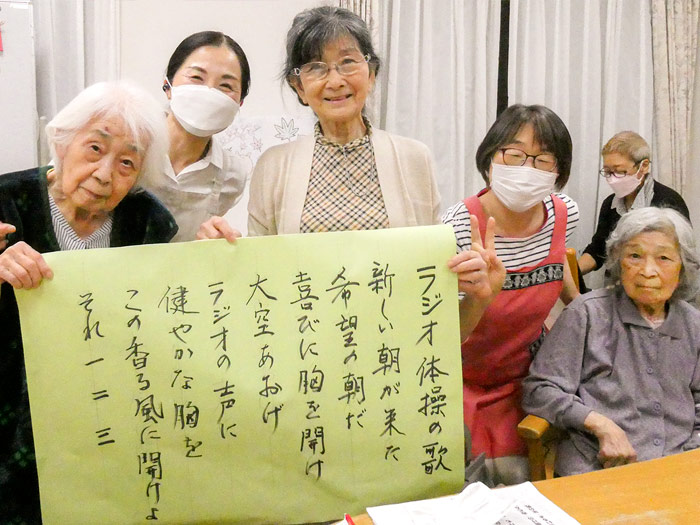 ラジオ体操の歌
新しい朝が来た
希望の朝だ
喜びに胸を開け
大空あおげ
ラジオの声に
健やかな胸を
この香る風に開けよ
それ一二三